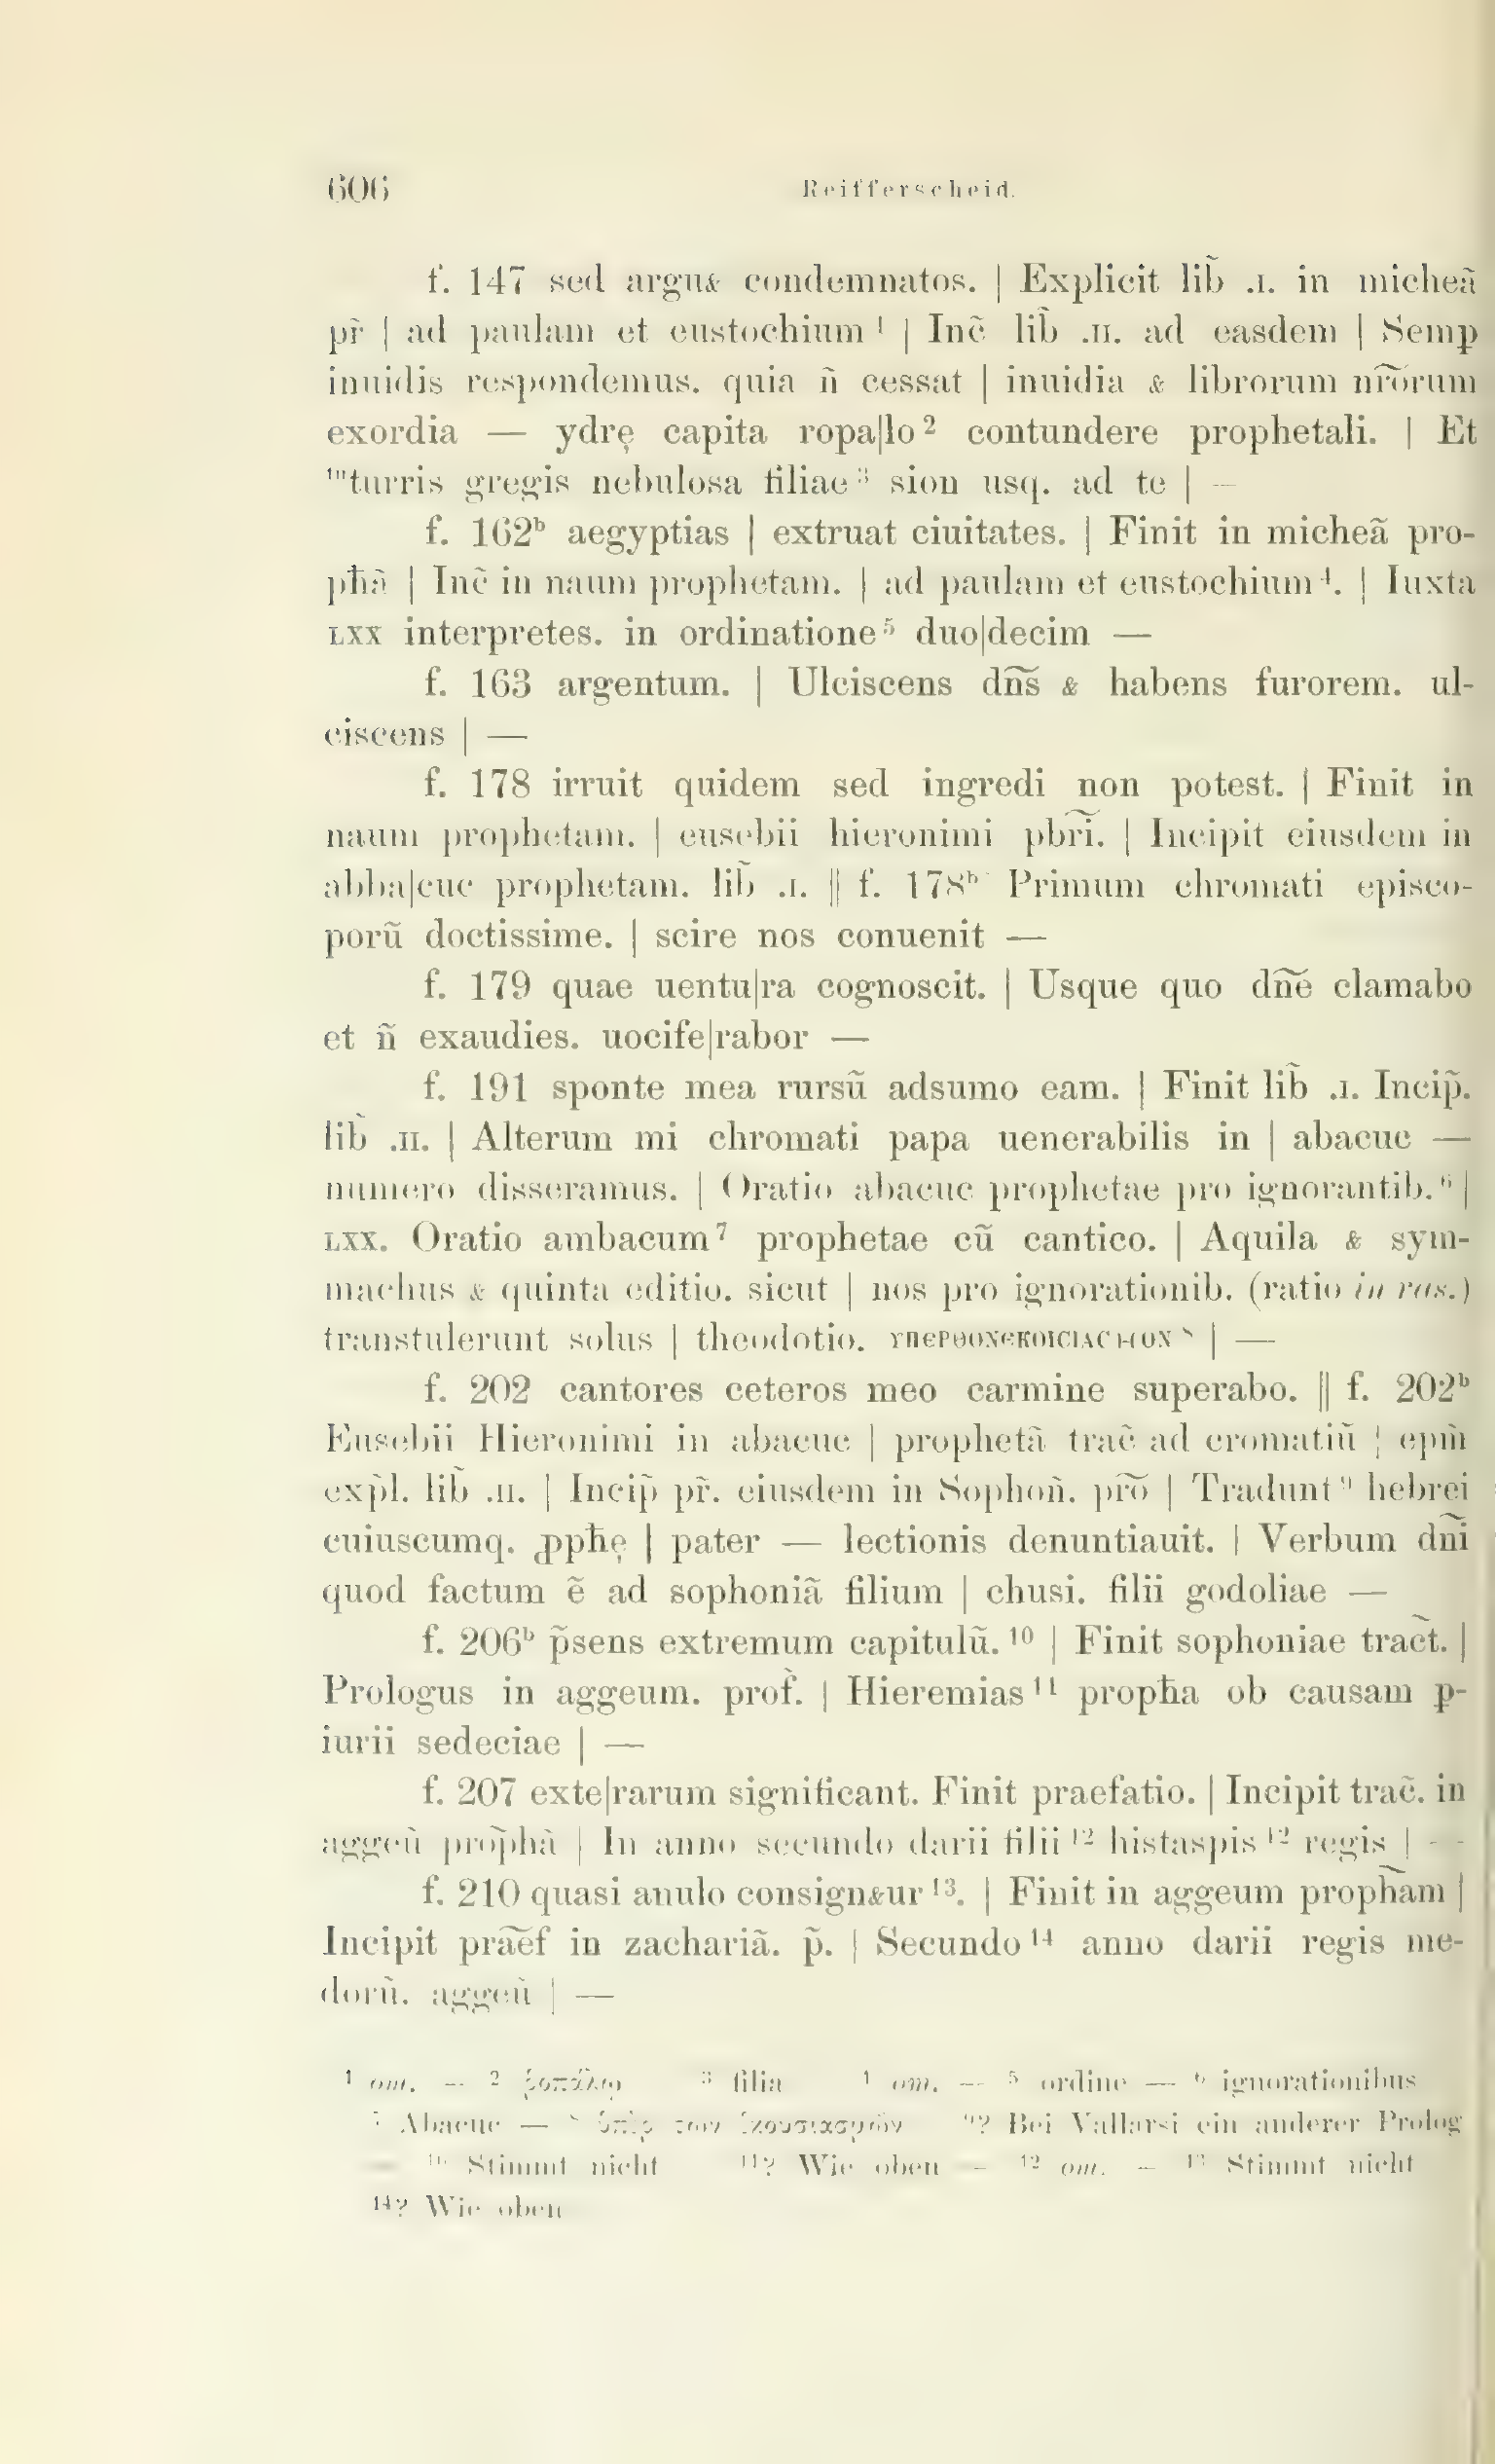 606 Reifferscheid.
f. 147 sed argu& condemnatos. | Explicit lib̃ .I. in micheã
pr̃ | ad paulam et eustochium ¹ | Inc̃ lib̃ .II. ad easdem | Semp̱
inuidis respondemus. quia ñ cessat | inuidia & librorum nr̃orum
exordia — ydrę capita ropa|lo ² contundere prophetali. | Et
t̄u turris gregis nebulosa filiae ³ sion usq. ad te | —
f. 162ᵇ aegyptias | extruat ciuitates. | Finit in micheã pro-
pħã | Inc̃ in naum prophetam. | ad paulam et eustochium ⁴. | Iuxta
LXX interpretes. in ordinatione ⁵ duo|decim —
f. 163 argentum. | Ulciscens dñs & habens furorem. ul-
ciscens | —
f. 178 irruit quidem sed ingredi non potest. | Finit in
naum prophetam. | eusebii hieronimi pbr̃i. | Incipit eiusdem in
abba|cuc prophetam. lib̃ .I. || f. 178ᵇ Primum chromati episco-
porũ doctissime. | scire nos conuenit —
f. 179 quae uentu|ra cognoscit. | Usque quo dñe clamabo
et ñ exaudies. uocife|rabor —
f. 191 sponte mea rursũ adsumo eam. | Finit lib̃ .I. Incip̃.
lib̃ .II. | Alterum mi chromati papa uenerabilis in | abacuc —
numero disseramus. | Oratio abacuc prophetae pro ignorantib. ⁶ |
LXX. Oratio ambacum ⁷ prophetae cũ cantico. | Aquila & sym-
machus & quinta editio. sicut | nos pro ignorationib. (ratio in ras.)
transtulerunt solus | theodotio. ⁸ | —
f. 202 cantores ceteros meo carmine superabo. || f. 202ᵇ
Eusebii Hieronimi in abacuc | prophetã trac̃ ad cromatiũ | epm̃
exp̃l. lib̃ .II. | Incip̃ pr̃. eiusdem in Sophoñ. pr̃o | Tradunt ⁹ hebrei
cuiuscumq. ꝓpħę | pater — lectionis denuntiauit. | Verbum dñi
quod factum ẽ ad sophoniã filium | chusi. filii godoliae —
f. 206ᵇ p̃sens extremum capitulũ. ¹⁰ | Finit sophoniae tract̃. |
Prologus in aggeum. prof̃. | Hieremias ¹¹ propħa ob causam ꝑ-
iurii sedeciae | —
f. 207 exte|rarum significant. Finit praefatio. | Incipit trac̃. in
aggeũ prop̃hã | In anno secundo darii filii ¹² histaspis ¹² regis | —
f. 210 quasi anulo consign&ur ¹³. | Finit in aggeum proph̃am |
Incipit praẽf in zachariã. p̃. | Secundo ¹⁴ anno darii regis me-
dorũ. aggeũ | —
¹ om. — ² ῥοπάλῳ ³ filia ⁴ om. — ⁵ ordine — ⁶ ignorationibus
⁷ Abacuc — ⁸ ὑπὲρ τῶν ἑκουσιασμῶν ⁹? Bei Vallarsi ein anderer Prolog
— ¹⁰ Stimmt nicht ¹¹? Wie oben — ¹² om. — ¹³ Stimmt nicht
¹⁴? Wie oben